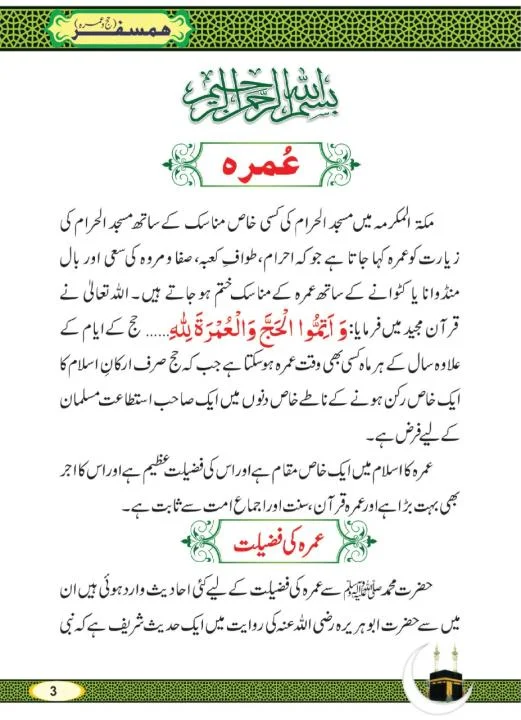 ھمسفر (حج و عمرہ)
بسم الله الرحمن الرحيم
عُمرہ
مکۃ المکرمہ میں مسجد الحرام کی کسی خاص مناسک کے ساتھ مسجد الحرام کی
زیارت کو عمرہ کہا جاتا ہے جو کہ احرام، طوافِ کعبہ، صفا و مروہ کی سعی اور بال
منڈوانا یا کٹوانے کے ساتھ عمرہ کے مناسک ختم ہو جاتے ہیں۔ اللہ تعالیٰ نے
قرآن مجید میں فرمایا: وَ اَتِمُّوا الْحَجَّ وَالْعُمْرَةَ لِلّٰهِ...... حج کے ایام کے
علاوہ سال کے ہر ماہ کسی بھی وقت عمرہ ہو سکتا ہے جب کہ حج صرف ارکانِ اسلام کا
ایک خاص رکن ہونے کے ناطے خاص دنوں میں ایک صاحب استطاعت مسلمان
کے لیے فرض ہے۔
عمرہ کا اسلام میں ایک خاص مقام ہے اور اس کی فضیلت عظیم ہے اور اس کا اجر
بھی بہت بڑا ہے اور عمرہ قرآن، سنت اور اجماع امت سے ثابت ہے۔
عمرہ کی فضیلت
حضرت محمد ﷺ سے عمرہ کی فضیلت کے لیے کئی احادیث وارد ہوئی ہیں ان
میں سے حضرت ابو ہریرہ رضی اللہ عنہ کی روایت میں ایک حدیث شریف ہے کہ نبی
3